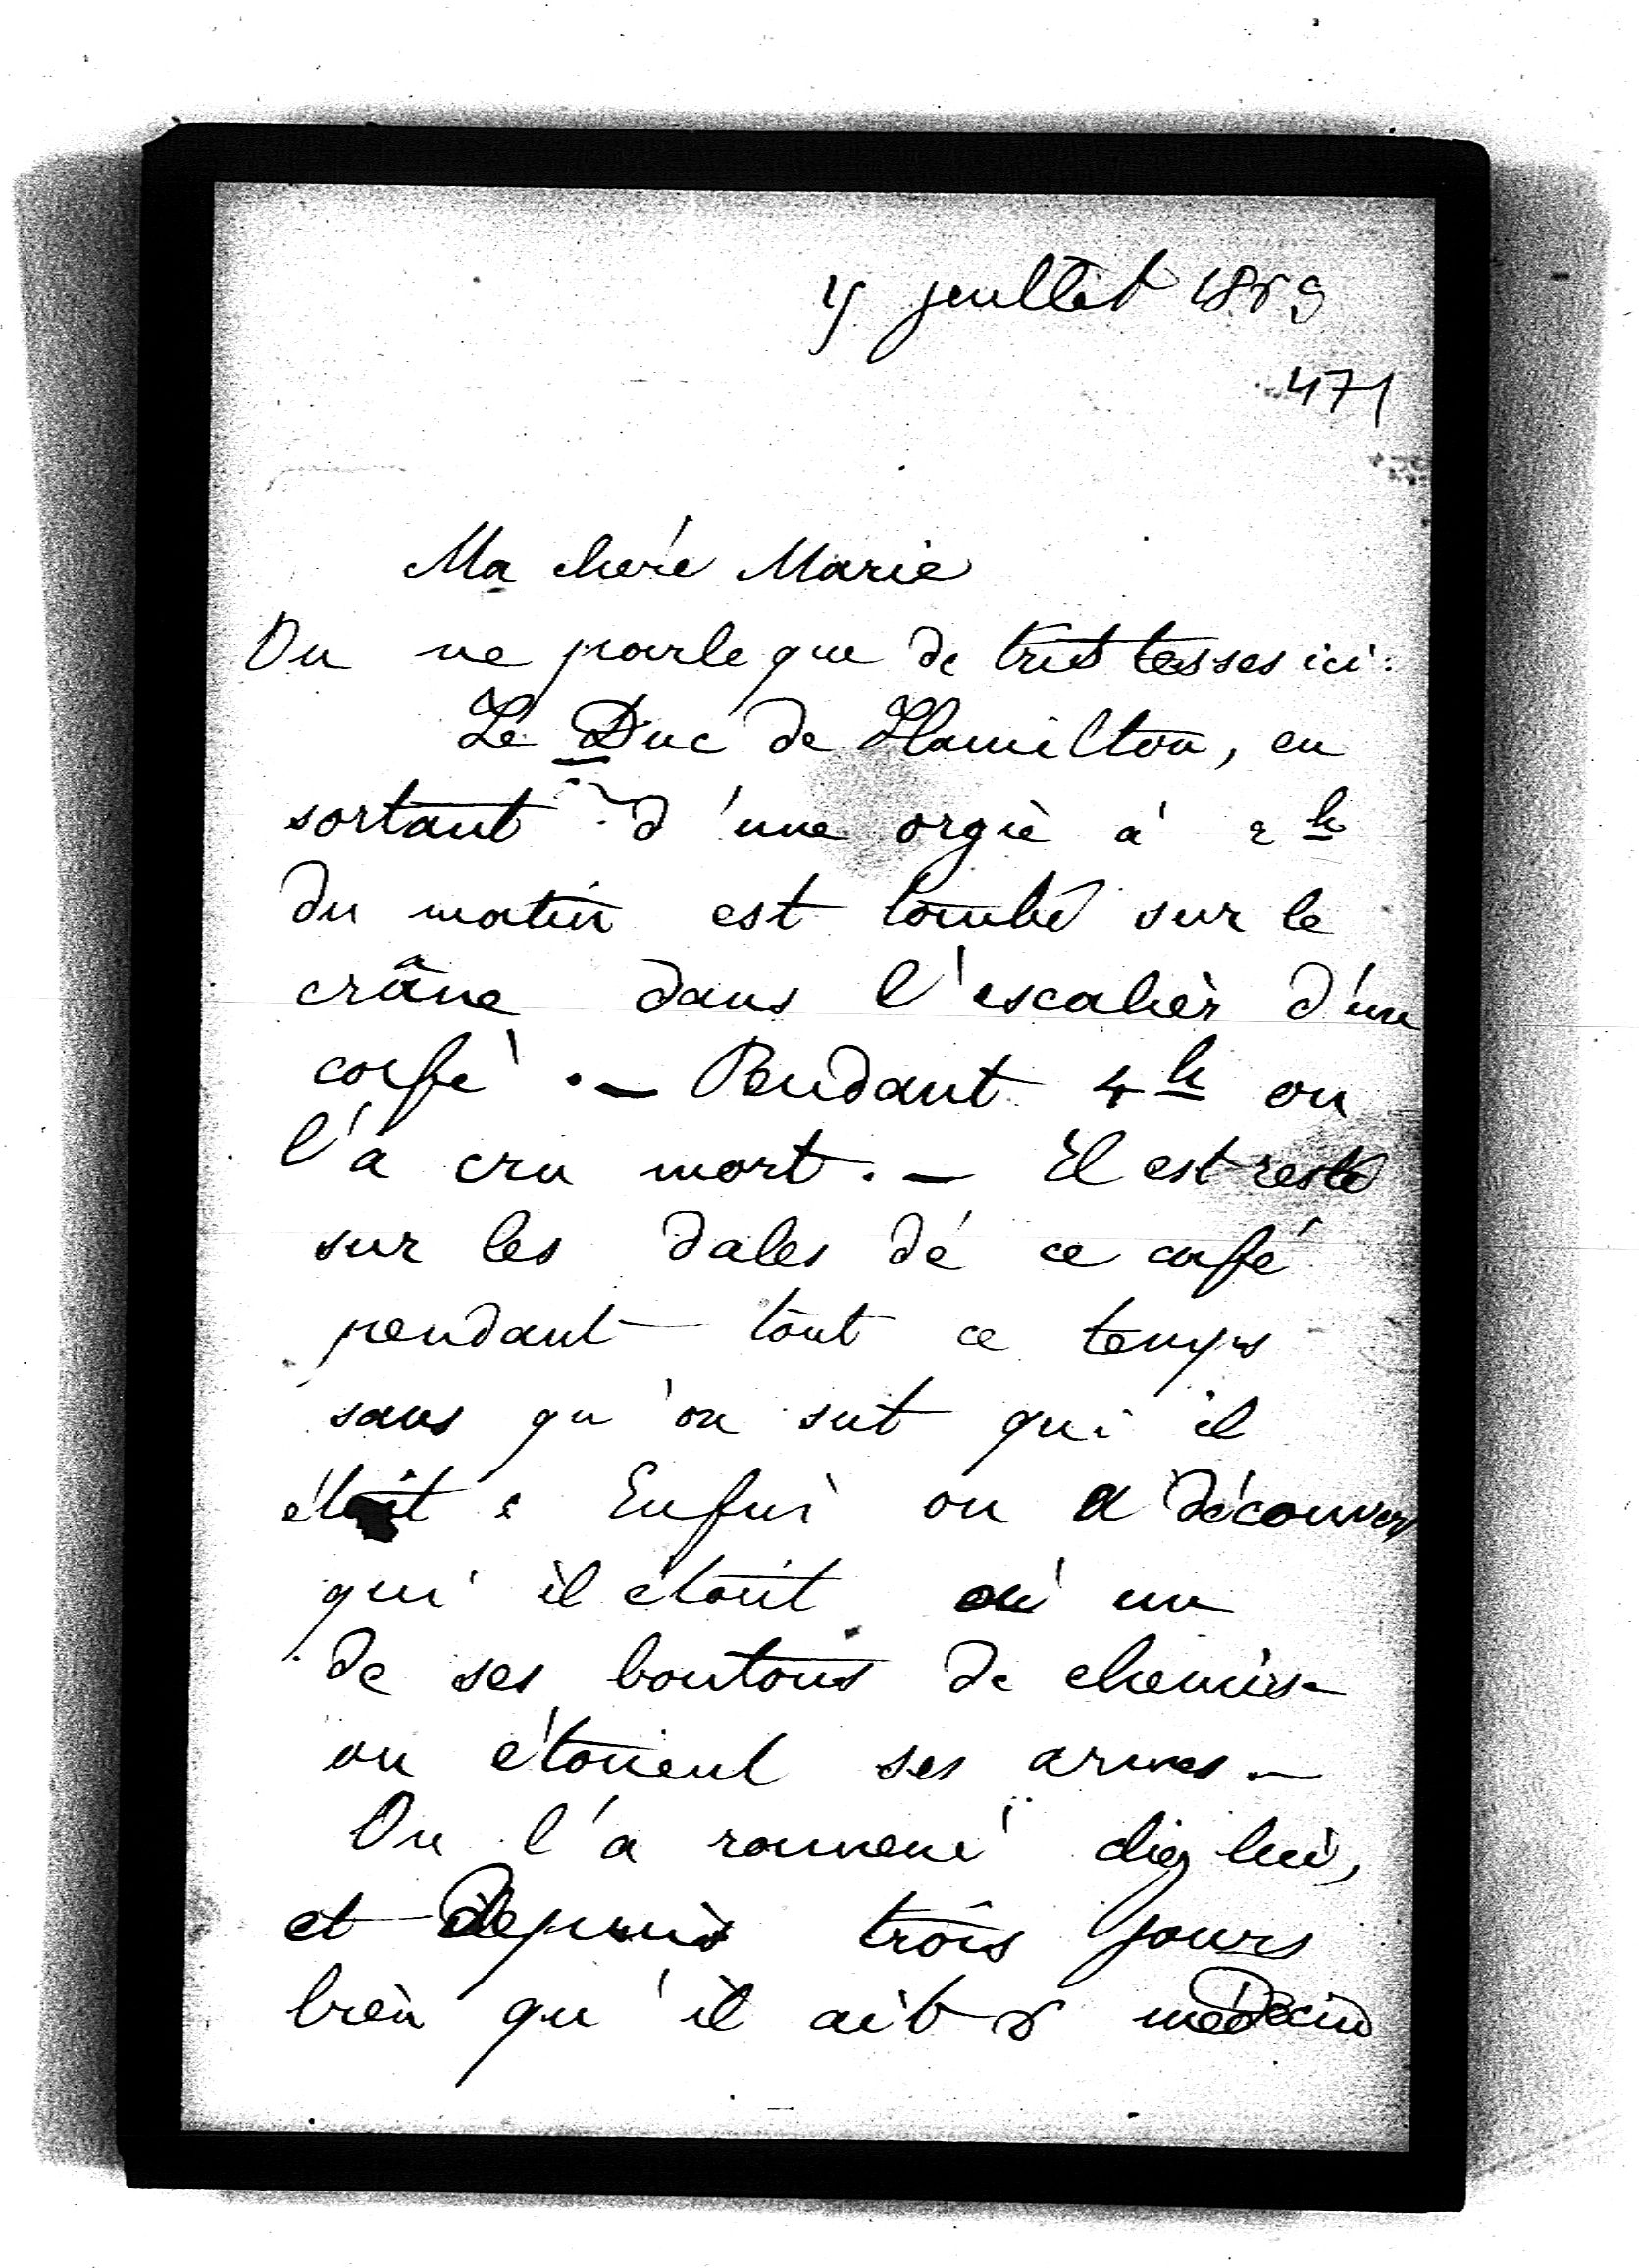 juillet 1863
471
Ma chère Marie
On ne parle que de tristesses ici :
Le Duc de Hamilton, en
sortant d'une orgie à 2h
du matin est tombé sur le
crâne dans l'escalier d'un
café . — Pendant 4h on
l'a cru mort . — Il est resté
sur les dales de ce café
pendant tout ce temps
sans qu'on sut qui il
était : Enfin on a découvert
qui il était où un
de ses boutons de chemise
ou étaient ses armes —
On l'a ramené chez lui,
et depuis trois jours
bien qu'il ait 8 médecins